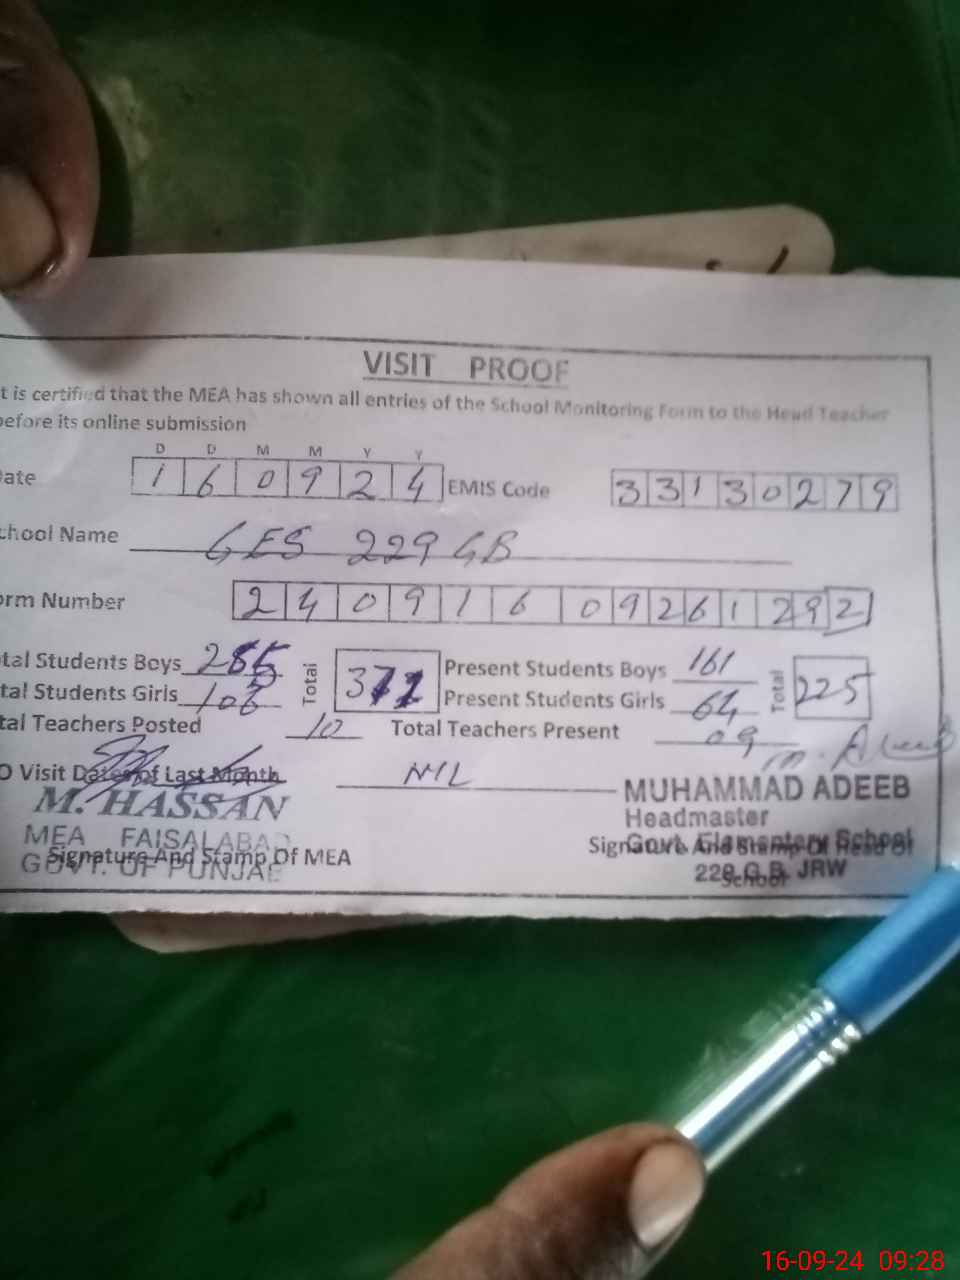 VISIT PROOF
t is certified that the MEA has shown all entries of the School Monitoring Form to the Head Teacher
before its online submission
D D M M Y Y
ate 1 6 0 9 2 4 EMIS Code 3 3 1 3 0 2 7 9
chool Name GES 229 GB
orm Number 2 4 0 9 1 6 0 9 2 6 1 2 9 2
tal Students Boys Total Present Students Boys 161 Total 225
tal Students Girls Present Students Girls 64
tal Teachers Posted 10 Total Teachers Present 09
M. Adeeb
O Visit Dates of Last Month NIL
M. HASSAN
MEA FAISALABAD
GOVT. OF PUNJAB
Signature And Stamp Of MEA
MUHAMMAD ADEEB
Headmaster
Govt. Elementary School
Signature And Stamp Of Head Of
School
229 G.B. JRW
16-09-24 09:28